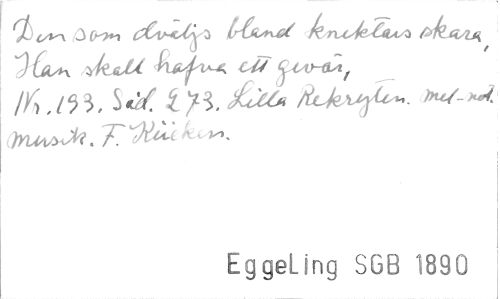 Den som dväljs bland knektars skara,
Han skall hafva ett gevär,
Nr. 193. Sid. 273. Lilla Rekryten. mel-not.
musik. F. Kücken.
EggeLing SGB 1890